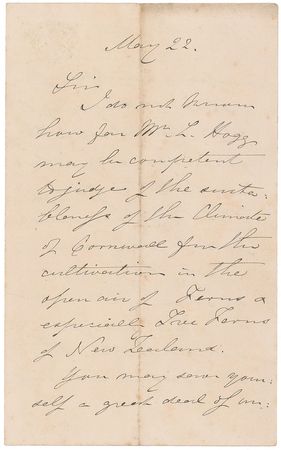 May 22.
Sir
I do not know
how far Mr. L. Hogg
may be competent
to judge of the suita-
bleness of the Climate
of Cornwall for the
cultivation in the
open air of Ferns &
especially Tree Ferns
of New Zealand.
You may save your-
self a great deal of un-